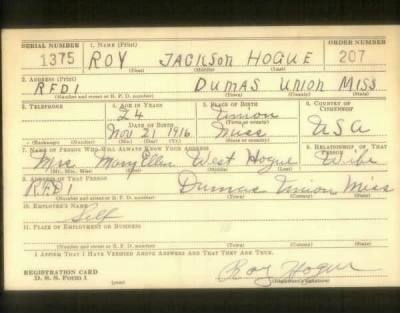 SERIAL NUMBER 1. NAME (Print) ORDER NUMBER
1375 ROY JACKSON HOGUE 207
(First) (Middle) (Last)
2. ADDRESS (Print)
RFD1 DUMAS UNION MISS
(Number and street or R. F. D. number) (Town) (County) (State)
3. TELEPHONE 4. AGE IN YEARS 5. PLACE OF BIRTH 6. COUNTRY OF CITIZENSHIP
24 Union
DATE OF BIRTH (Town or county)
Nov 21 1916 Miss USA
(Exchange) (Number) (Mo.) (Day) (Yr.) (State or country)
7. NAME OF PERSON WHO WILL ALWAYS KNOW YOUR ADDRESS 8. RELATIONSHIP OF THAT PERSON
Mrs Mary Ellen West Hogue Wife
(Mr., Mrs., Miss) (First) (Middle) (Last)
9. ADDRESS OF THAT PERSON
RFD1 Dumas Union Miss
(Number and street or R. F. D. number) (Town) (County) (State)
10. EMPLOYER'S NAME
Self
11. PLACE OF EMPLOYMENT OR BUSINESS
(Number and street or R. F. D. number) (Town) (County) (State)
I AFFIRM THAT I HAVE VERIFIED ABOVE ANSWERS AND THAT THEY ARE TRUE.
REGISTRATION CARD Roy Hogue
D. S. S. Form 1 (over) (Registrant's signature)